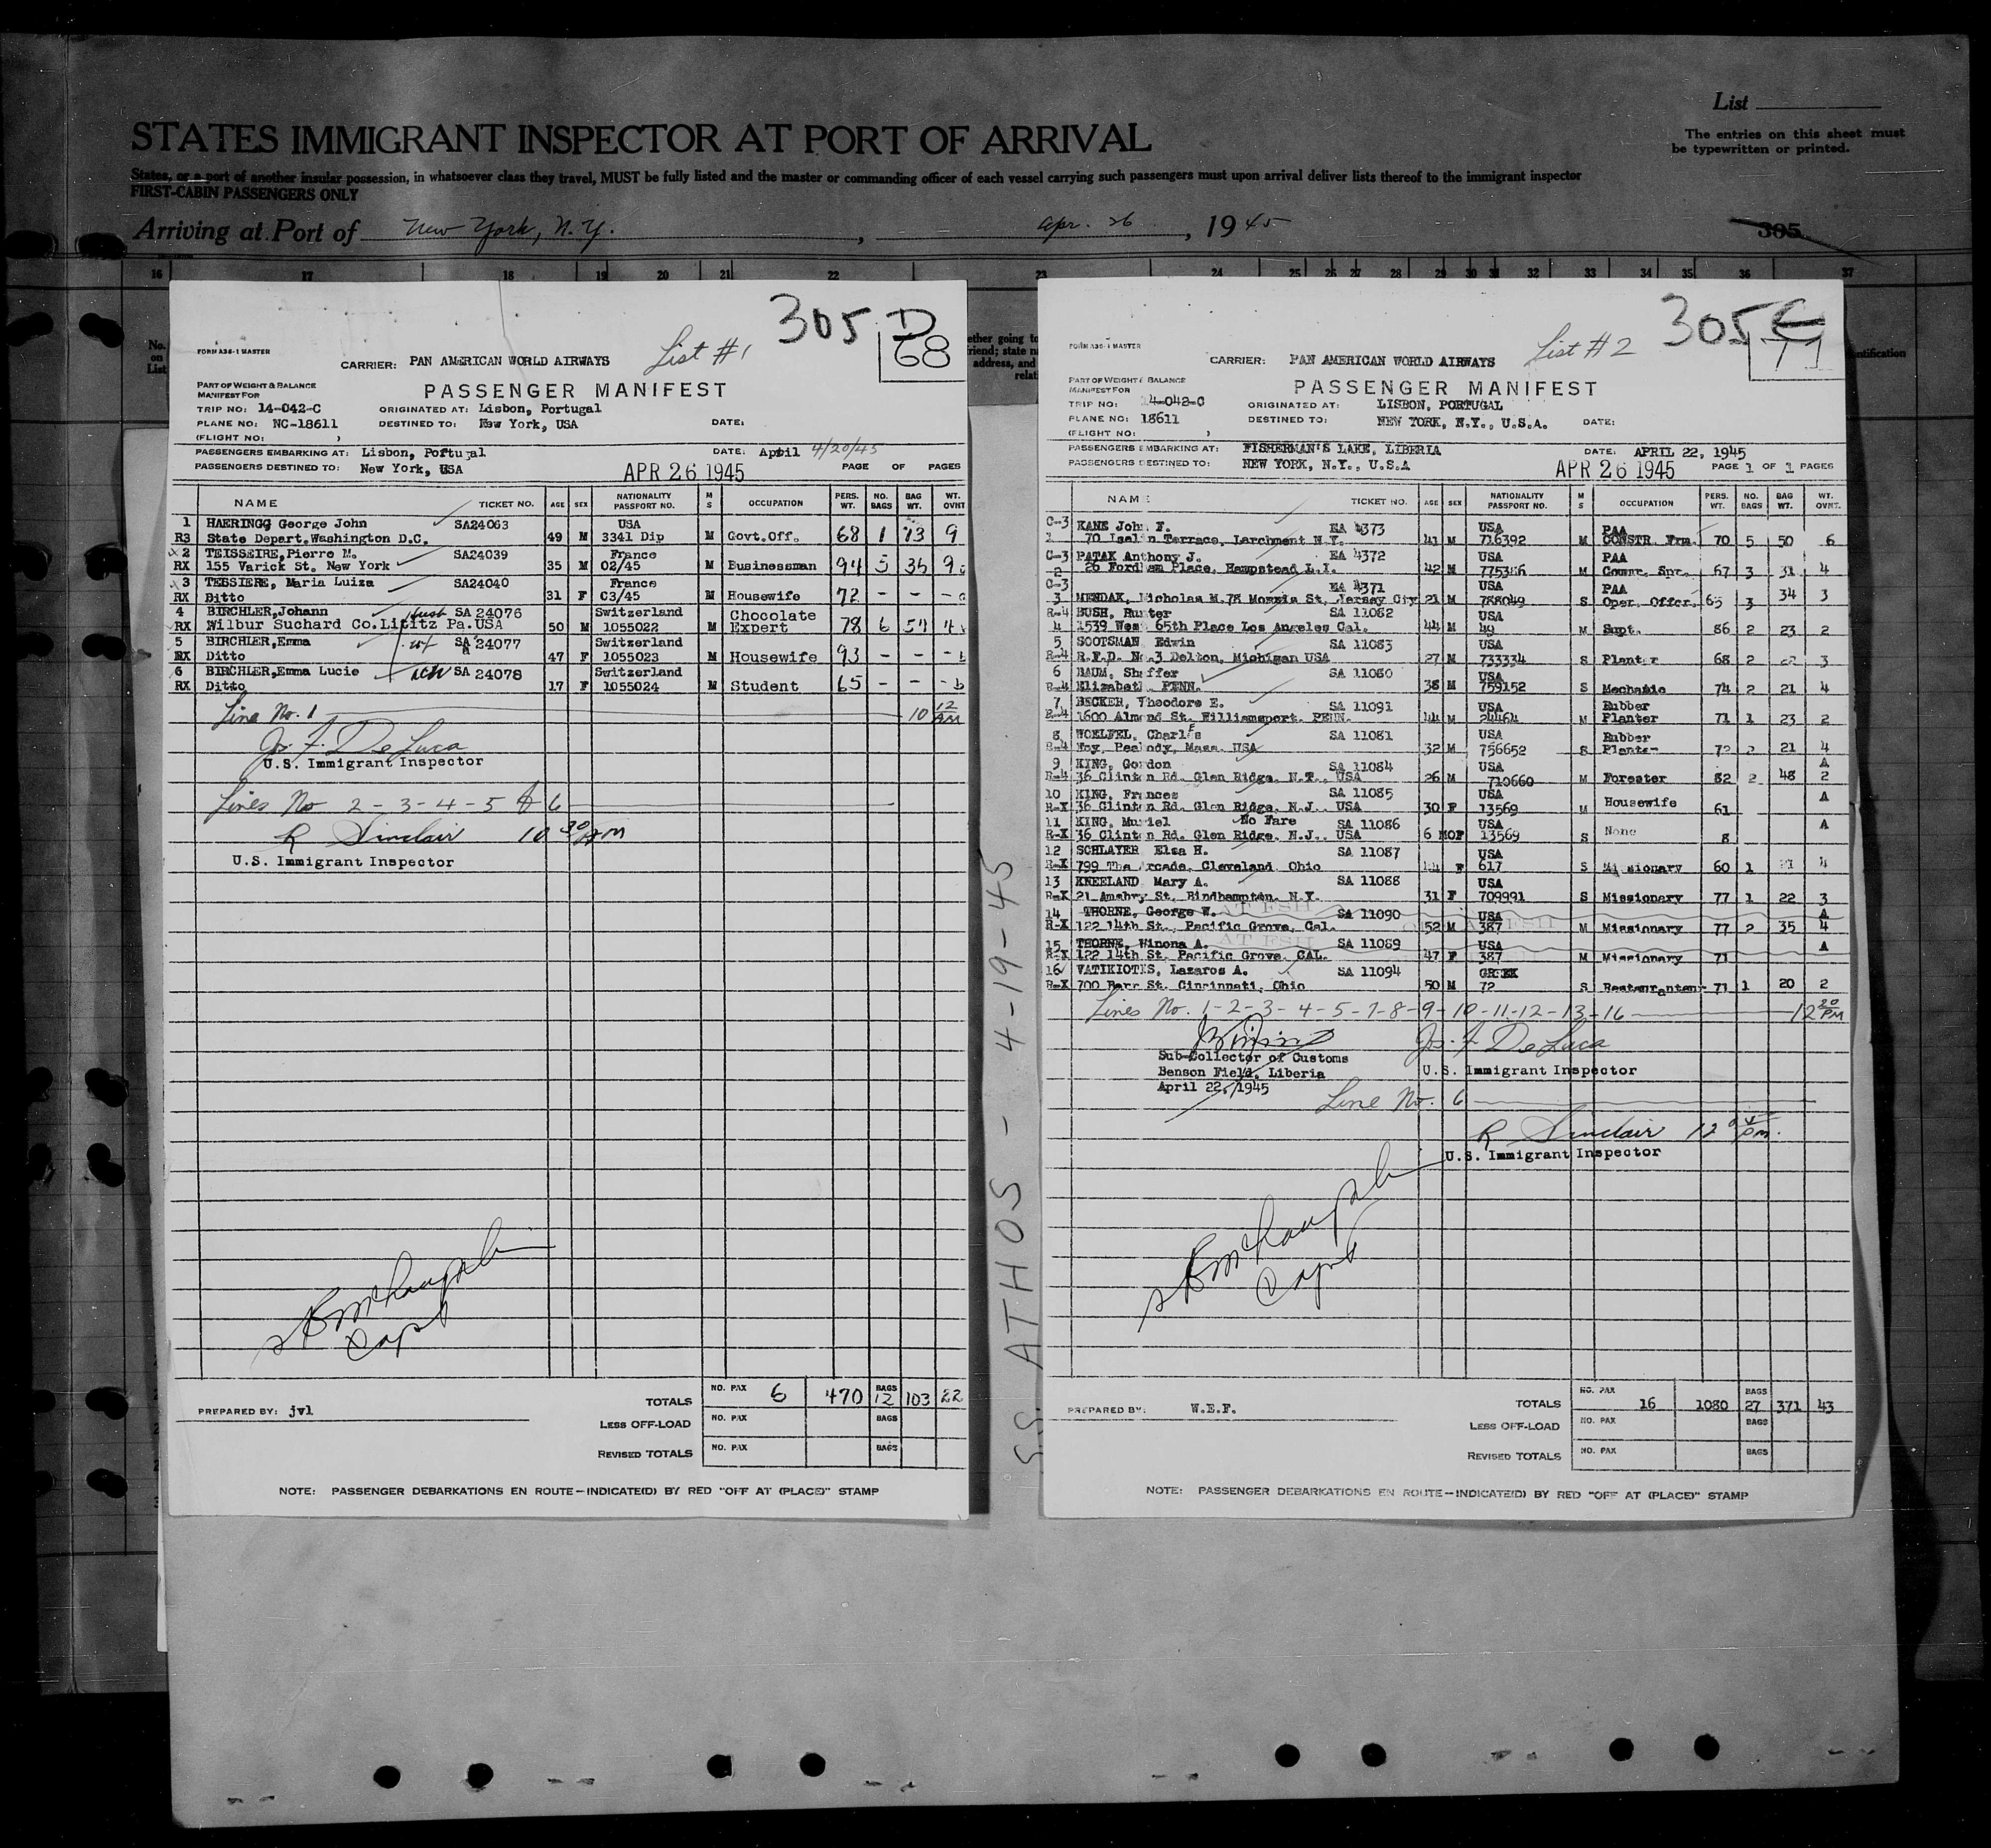 List
The entries on this sheet must
be typewritten or printed.
STATES IMMIGRANT INSPECTOR AT PORT OF ARRIVAL
States, or a port of another insular possession, in whatsoever class they travel, MUST be fully listed and the master or commanding officer of each vessel carrying such passengers must upon arrival deliver lists thereof to the immigrant inspector
FIRST-CABIN PASSENGERS ONLY
Arriving at Port of New York, N.Y. , Apr. 26 , 1945
305
16 17 18 19 20 21 22 23 24 25 26 27 28 29 30 31 32 33 34 35 36 37
No.
on
List
305 D
68
FORM A38-1 MASTER
List #1
CARRIER: PAN AMERICAN WORLD AIRWAYS
PART OF WEIGHT & BALANCE
MANIFEST FOR
PASSENGER MANIFEST
TRIP NO: 14-042-C ORIGINATED AT: Lisbon, Portugal
PLANE NO: NC-18611 DESTINED TO: New York, USA DATE:
(FLIGHT NO: )
PASSENGERS EMBARKING AT: Lisbon, Portugal DATE: April 4/20/45
PASSENGERS DESTINED TO: New York, USA APR 26 1945 PAGE OF PAGES
NAME TICKET NO. AGE SEX NATIONALITY PASSPORT NO. M S OCCUPATION PERS. WT. NO. BAGS BAG WT. WT. OVNT
1 HAERINGG George John SA24063 USA
R3 State Depart.Washington D.C. 49 M 3341 Dip M Govt.Off. 68 1 13 9
x2 TEISSEIRE,Pierre M. SA24039 France
RX 155 Varick St. New York 35 M 02/45 M Businessman 94 5 36 9
x3 TESSIERE, Maria Luiza SA24040 France
RX Ditto 31 F C3/45 M Housewife 72 - - -
4 BIRCHLER,Johann SA 24076 Switzerland Chocolate
RX Wilbur Suchard Co.Lititz Pa.USA 50 M 1055022 M Expert 78 6 54 4
5 BIRCHLER,Emma SA 24077 Switzerland
RX Ditto 47 F 1055023 M Housewife 93 - - -
6 BIRCHLER,Emma Lucie SA 24078 Switzerland
RX Ditto 17 F 1055024 M Student 65 - - -
Line No. 1 10 12 AM
Jos. F. De Luca
U.S. Immigrant Inspector
Lines No 2-3-4-5 & 6
R Sinclair 10 30 AM
U.S. Immigrant Inspector
Capt
TOTALS NO. PAX 6 470 BAGS 12 103 22
PREPARED BY: jvl
LESS OFF-LOAD NO. PAX BAGS
REVISED TOTALS NO. PAX BAGS
NOTE: PASSENGER DEBARKATIONS EN ROUTE—INDICATE(D) BY RED "OFF AT (PLACE)" STAMP
SS ATHOS - 4-19-45
305 E
71
FORM A38-1 MASTER
List #2
CARRIER: PAN AMERICAN WORLD AIRWAYS
PART OF WEIGHT & BALANCE
MANIFEST FOR
PASSENGER MANIFEST
TRIP NO: 14-042-C ORIGINATED AT: LISBON, PORTUGAL
PLANE NO: 18611 DESTINED TO: NEW YORK, N.Y., U.S.A. DATE:
(FLIGHT NO: )
PASSENGERS EMBARKING AT: FISHERMAN'S LAKE, LIBERIA DATE: APRIL 22, 1945
PASSENGERS DESTINED TO: NEW YORK, N.Y., U.S.A APR 26 1945 PAGE 1 OF 1 PAGES
NAME TICKET NO. AGE SEX NATIONALITY PASSPORT NO. M S OCCUPATION PERS. WT. NO. BAGS BAG WT. WT. OVNT.
C-3 KANE John F. EA 4373 USA PAA
1 70 Iselin Terrace, Larchment N.Y. 41 M 716392 M CONSTR. Frm. 70 5 50 6
C-3 PATAK Anthony J. EA 4372 USA PAA
2 26 Fordham Place, Hampstead L.I. 42 M 775346 M Commr. Spr. 67 3 31 4
C-3 EA 4371 USA PAA
3 MENDAK, Nicholas M.78 Morris St, Jersey City 21 M 788049 S Oper. Offcr. 65 3 34 3
R-4 BUSH, Hunter SA 11082 USA
4 1539 West 65th Place Los Angeles Cal. 44 M 49 M Supt. 86 2 23 2
5 SOOTSMAN Edwin SA 11083 USA
R-4 R.F.D. No.3 Delton, Michigan USA 27 M 733334 S Planter 68 2 22 3
6 BAUM, Shaffer SA 11080 USA
R-4 Elizabeth PENN. 38 M 759152 S Mechanic 74 2 21 4
7 BECKER, Theodore E. SA 11091 USA Rubber
R-4 1600 Almond St. Williamsport, PENN. 44 M 24464 M Planter 71 1 23 2
8 WOELFEL, Charles SA 11081 USA Rubber
R-4 Foy, Peabody, Mass. USA 32 M 756652 S Planter 72 2 21 4
9 KING, Gordon SA 11084 USA A
R-4 36 Clinton Rd. Glen Ridge, N.T., USA 26 M 710660 M Forester 82 2 48 2
10 KING, Frances SA 11085 USA Housewife A
R-X 36 Clinton Rd. Glen Ridge, N.J., USA 30 F 13569 M 61
11 KING, Muriel No Fare SA 11086 USA None A
R-X 36 Clinton Rd. Glen Ridge, N.J., USA 6 MOF 13569 S 8
12 SCHLAYER Elsa H. SA 11087 USA
R-X 799 The Arcade, Cleveland Ohio 44 F 617 S Missionary 60 1 21 4
13 KNEELAND Mary A. SA 11088 USA
R-X 21 Amabry St. Bindhampton, N.Y. 31 F 709991 S Missionary 77 1 22 3
14 THORNE, George W. AT FSH SA 11090 USA A
R-X 122 14th St., Pacific Grove, Cal. 52 M 387 M Missionary 77 2 35 4
15 THORNE, Winona A. AT FSH SA 11089 USA A
R-X 122 14th St. Pacific Grove, CAL. 47 F 387 M Missionary 71
16 VATIKIOTIS, Lazaros A. SA 11094 GREEK
R-X 700 Barr St. Cincinnati, Ohio 50 M 72 S Restauranteur 71 1 20 2
Lines No. 1-2-3-4-5-7-8-9-10-11-12-13-16 12 20 PM
Sub-Collector of Customs Jos. F De Luca
Benson Field, Liberia U.S. Immigrant Inspector
April 22, 1945
Line No. 6
R Sinclair 12 pm.
U.S. Immigrant Inspector
Capt
TOTALS NO. PAX 16 1080 BAGS 27 371 43
PREPARED BY: W.E.F.
LESS OFF-LOAD NO. PAX BAGS
REVISED TOTALS NO. PAX BAGS
NOTE: PASSENGER DEBARKATIONS EN ROUTE—INDICATE(D) BY RED "OFF AT (PLACE)" STAMP